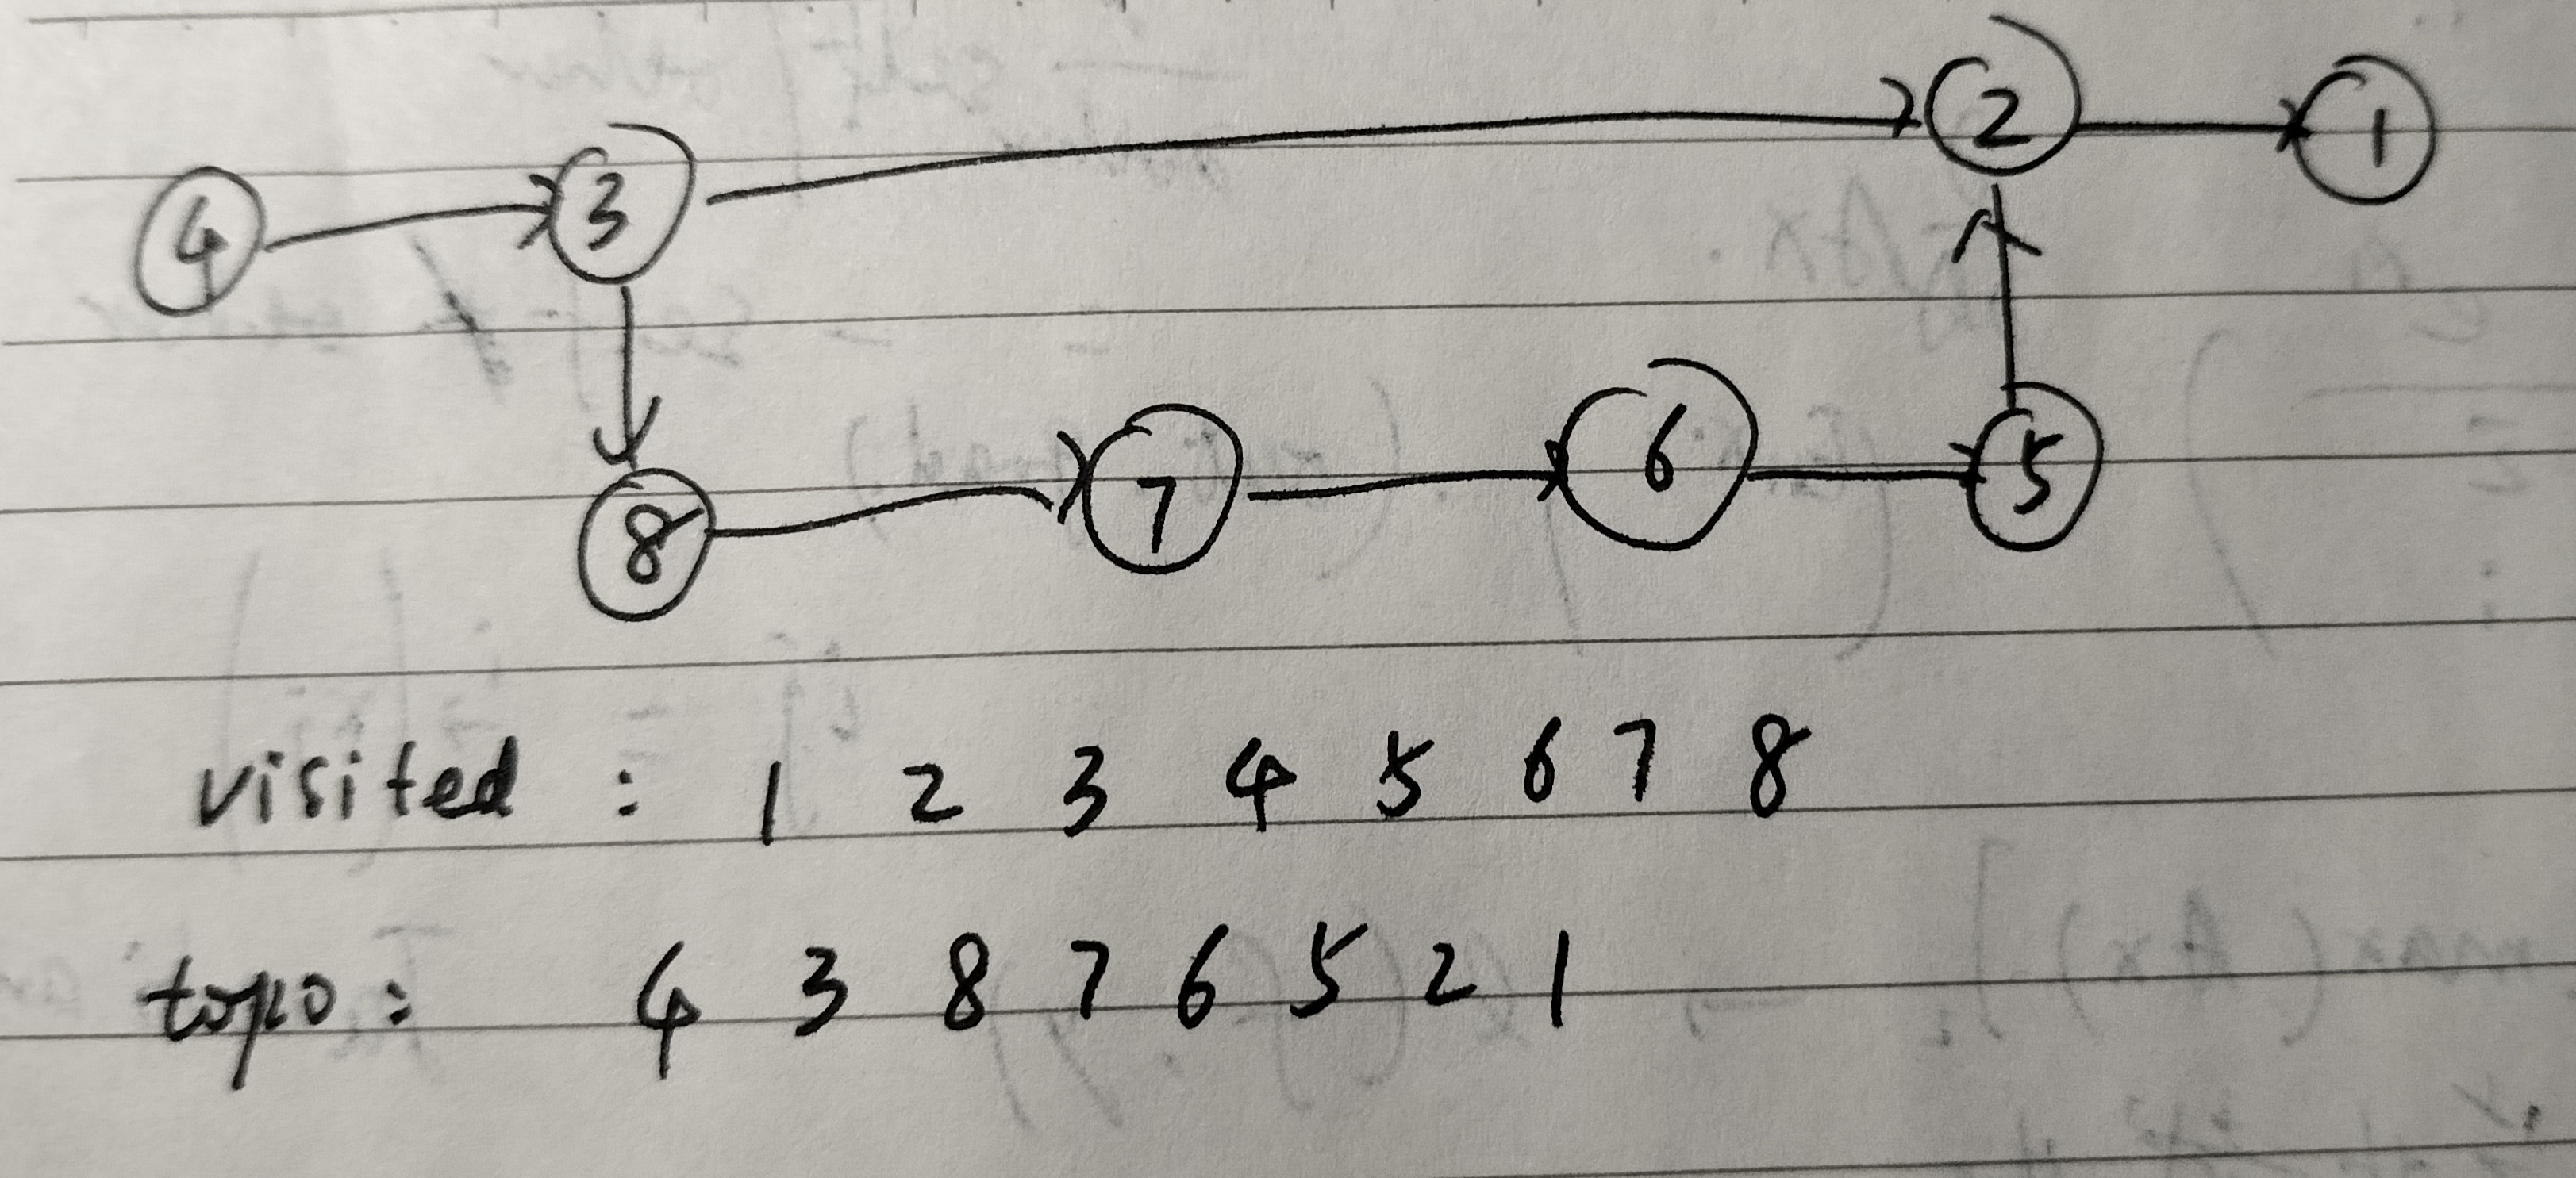 4 3 2 1
8 7 6 5
visited : 1 2 3 4 5 6 7 8
topo : 4 3 8 7 6 5 2 1